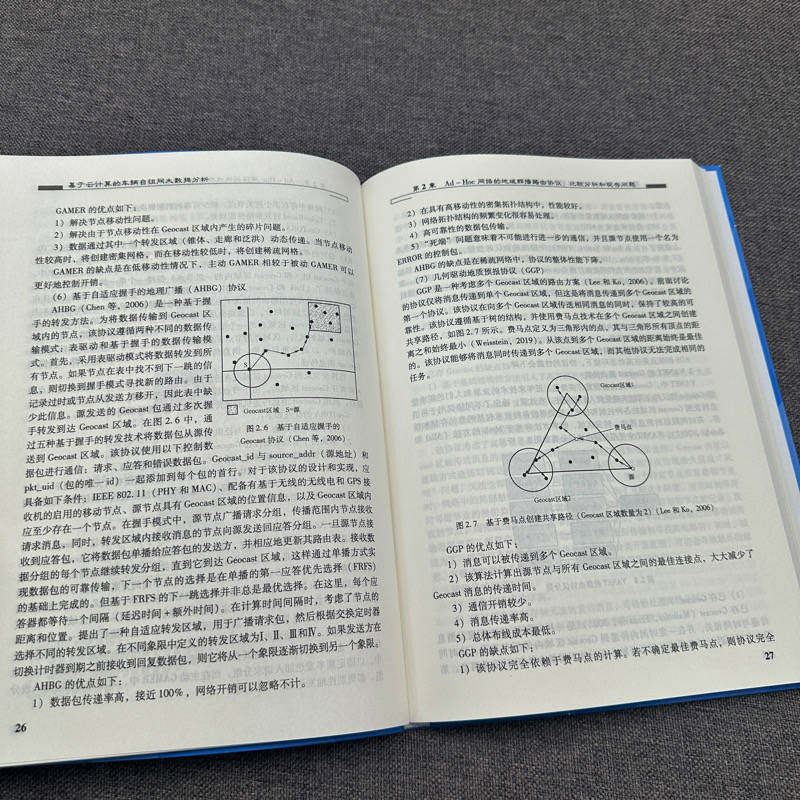 基于云计算的车辆自组网大数据分析
GAMER 的优点如下：
1）解决节点移动性问题。
2）解决由于节点移动性在 Geocast 区域内产生的碎片问题。
3）数据通过其中一个转发区域（锥体、走廊和泛洪）动态传递。当节点移动
性较高时，将创建密集网格，而在移动性较低时，将创建稀疏网格。
GAMER 的缺点是在低移动性情况下，主动 GAMER 相较于被动 GAMER 可以
更好地控制开销。
（6）基于自适应握手的地理广播（AHBG）协议
AHBG（Chen 等，2006）是一种基于握
手的转发方法。为将数据传输到 Geocast 区
域内的节点，该协议遵循两种不同的数据传
输模式：表驱动和基于握手的数据传输模
式。首先，采用表驱动模式将数据转发到所
有节点。如果节点在表中找不到下一跳的信
息，则切换到握手模式寻找新的路由。由于
记录过时或节点从发送方移开，因此表中缺
少此信息。源发送的 Geocast 包通过多次握
手转发到达 Geocast 区域。在图 2.6 中，通
过五种基于握手的转发技术将数据包从源传
送到 Geocast 区域。该协议使用以下控制数
据包进行通信：请求、应答和错误数据包。Geocast_id 与 source_addr（源地址）和
pkt_uid（包的唯一 id）一起添加到每个包的首行。对于该协议的设计和实现，应
具备如下条件：IEEE 802.11（PHY 和 MAC）、配备有基于无线的无线电和 GPS 接
收机的启用的移动节点、源节点具有 Geocast 区域的位置信息，以及 Geocast 区域内
应至少存在一个节点。在握手模式中，源节点广播请求分组，传播范围内节点接收
请求消息。同时，转发区域内接收消息的节点向源发送回应答分组。一旦源节点接
收到应答包，它将数据包单播给应答包的发送方，并相应地更新其路由表。接收数
据分组的每个节点继续转发分组，直到它到达 Geocast 区域，这样通过单播方式实
现数据包的可靠传输，下一个节点的选择是在单播的第一应答优先选择（FRFS）
的基础上完成的。但基于 FRFS 的下一跳选择并非总是最优选择。在这里，每个应
答器都等待一个间隔（延迟时间＋额外时间）。在计算时间间隔时，考虑了节点的
距离和位置。提出了一种自适应转发区域，用于广播请求包，然后根据交换定时器
选择不同的转发区域。在不同象限中定义的转发区域为Ⅰ、Ⅱ、Ⅲ和Ⅳ。如果发送方在
切换计时器到期之前接收到回复数据包，则它将从一个象限逐渐切换到另一个象限。
AHBG 的优点如下：
1）数据包传递率高，接近 100%，网络开销可以忽略不计。
S
Geocast区域 S=源
图 2.6 基于自适应握手的
Geocast 协议（Chen 等，2006）
26
第 2 章 Ad-Hoc 网络的地域群播路由协议：比较分析和现存问题
2）在具有高移动性的密集拓扑结构中，性能较好。
3）网络拓扑结构的频繁变化很容易处理。
4）高可靠性的数据包传输。
5）“死端”问题意味着不可能进行进一步的通信，并且源节点使用一个名为
ERROR 的控制包。
AHBG 的缺点是在稀疏网络中，协议的整体性能下降。
（7）几何驱动地质预报协议（GGP）
GGP 是一种考虑多个 Geocast 区域的路由方案（Lee 和 Ko，2006）。前面讨论
的协议仅将消息传递到单个 Geocast 区域，但这是将消息传递到多个 Geocast 区域的
第一个协议。该协议在向多个 Geocast 区域传送相同消息的同时，保持了较高的可
靠性。该协议遵循基于树的结构，并使用费马点技术在多个 Geocast 区域之间创建
共享路径，如图 2.7 所示。费马点定义为三角形内的点，其与三角形所有顶点的距
离之和始终最小（Weisstein，2019）。从该点到多个 Geocast 区域的距离始终是最佳
的。该协议能够将消息同时传递到多个 Geocast 区域，而其他协议无法完成相同的
任务。
Geocast区域1
费马点
源
Geocast区域2
图 2.7 基于费马点创建共享路径（Geocast 区域数量为 2）（Lee 和 Ko，2006）
GGP 的优点如下：
1）消息可以被传递到多个 Geocast 区域。
2）该算法计算出源节点与所有 Geocast 区域之间的最佳连接点，大大减少了
Geocast 消息的传递时间。
3）通信开销较少。
4）消息传递率高。
5）总体布线成本最低。
GGP 的缺点如下：
1）该协议完全依赖于费马点的计算。若不确定最佳费马点，则协议完全
27